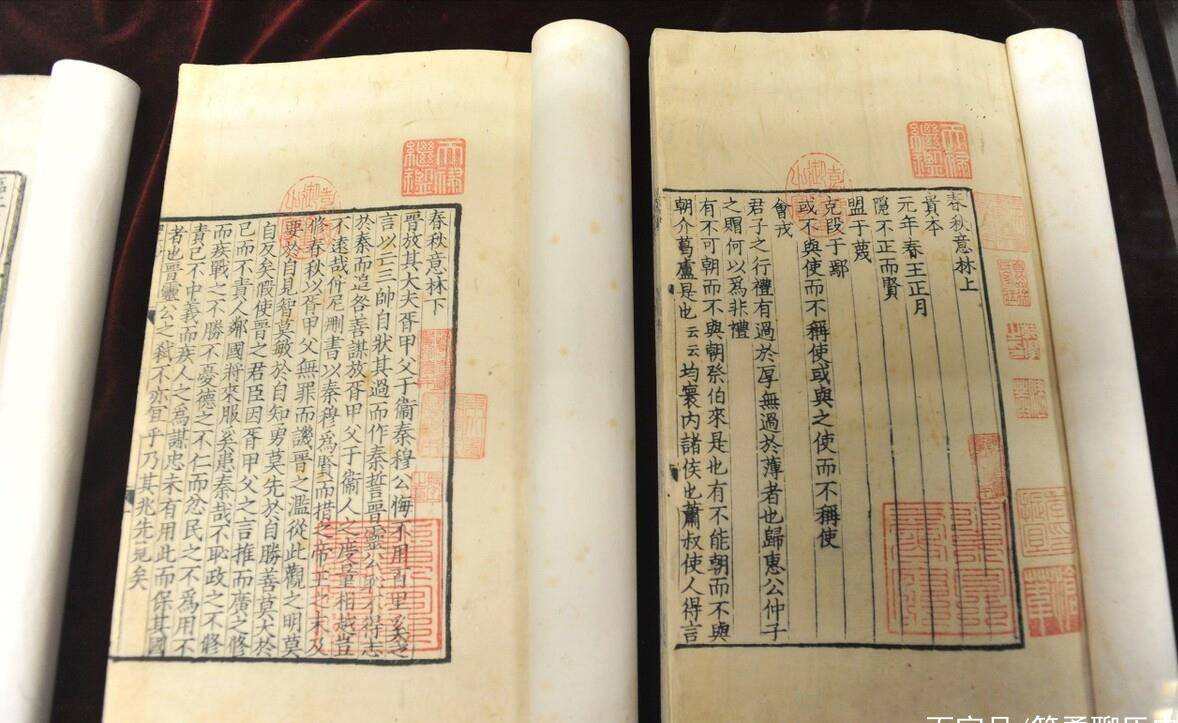 春秋意林上
貴本
元年春王正月
隱不正而賢
盟于蔑
克段于鄢
或不與使而不稱使或與之使而不稱使
會戎
君子之行禮有過於厚無過於薄者也歸惠公仲子
之賵何以爲非禮
有不可朝而不與朝祭伯來是也有不能朝而不與
朝介葛盧是也云云均寰内諸侯也蕭叔使人得言
天禄繼鑑
春秋意林下
晉放其大夫胥甲父于衞秦穆公悔不用百里奚之
言以亡三帥自狀其過而作秦誓晉靈公不得志
於秦而追咎善謀放胥甲父于衞人之度量相越豈
不遠哉仲尼刪書以秦穆爲賢而措之帝王之末及
脩春秋以胥甲父無罪而譏晉之濫從此觀之明莫
要於自見智莫敏於自知勇莫先於自勝善莫大於
自反矣嚮使晉之君臣因胥甲父之言推而廣之修
己而不責人鄰國將來服奚患秦哉不恥政之不修
而疾戰之不勝不憂德之不仁而忿民之不爲用不
責己不中義而疾人之爲謀忠未有用此而保其國
者也晉靈公之弑不亦宜乎乃其兆先見矣
天禄繼鑑